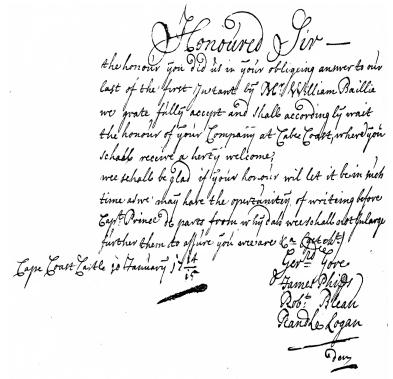 Honoured Sir
the honour you did us in your obligeing answer to our
last of the first Instant by Mr William Baillie
we gratefully accept and shall accordingly wait
the honour of your Company at Cabe Coast, where you
schall receive a herty welcome;
wee schall be glad if your honour wil let it be in such
time as we may have the opertunitiy of writeing before
Capt. Prince de parts from whydah wee schall not Inlarge
further then to assure you wee are
Gerrd Gore
James Phipps
Robt. Bleau
Randle Logan
Cape Coast Castle 20 January 17 14/15